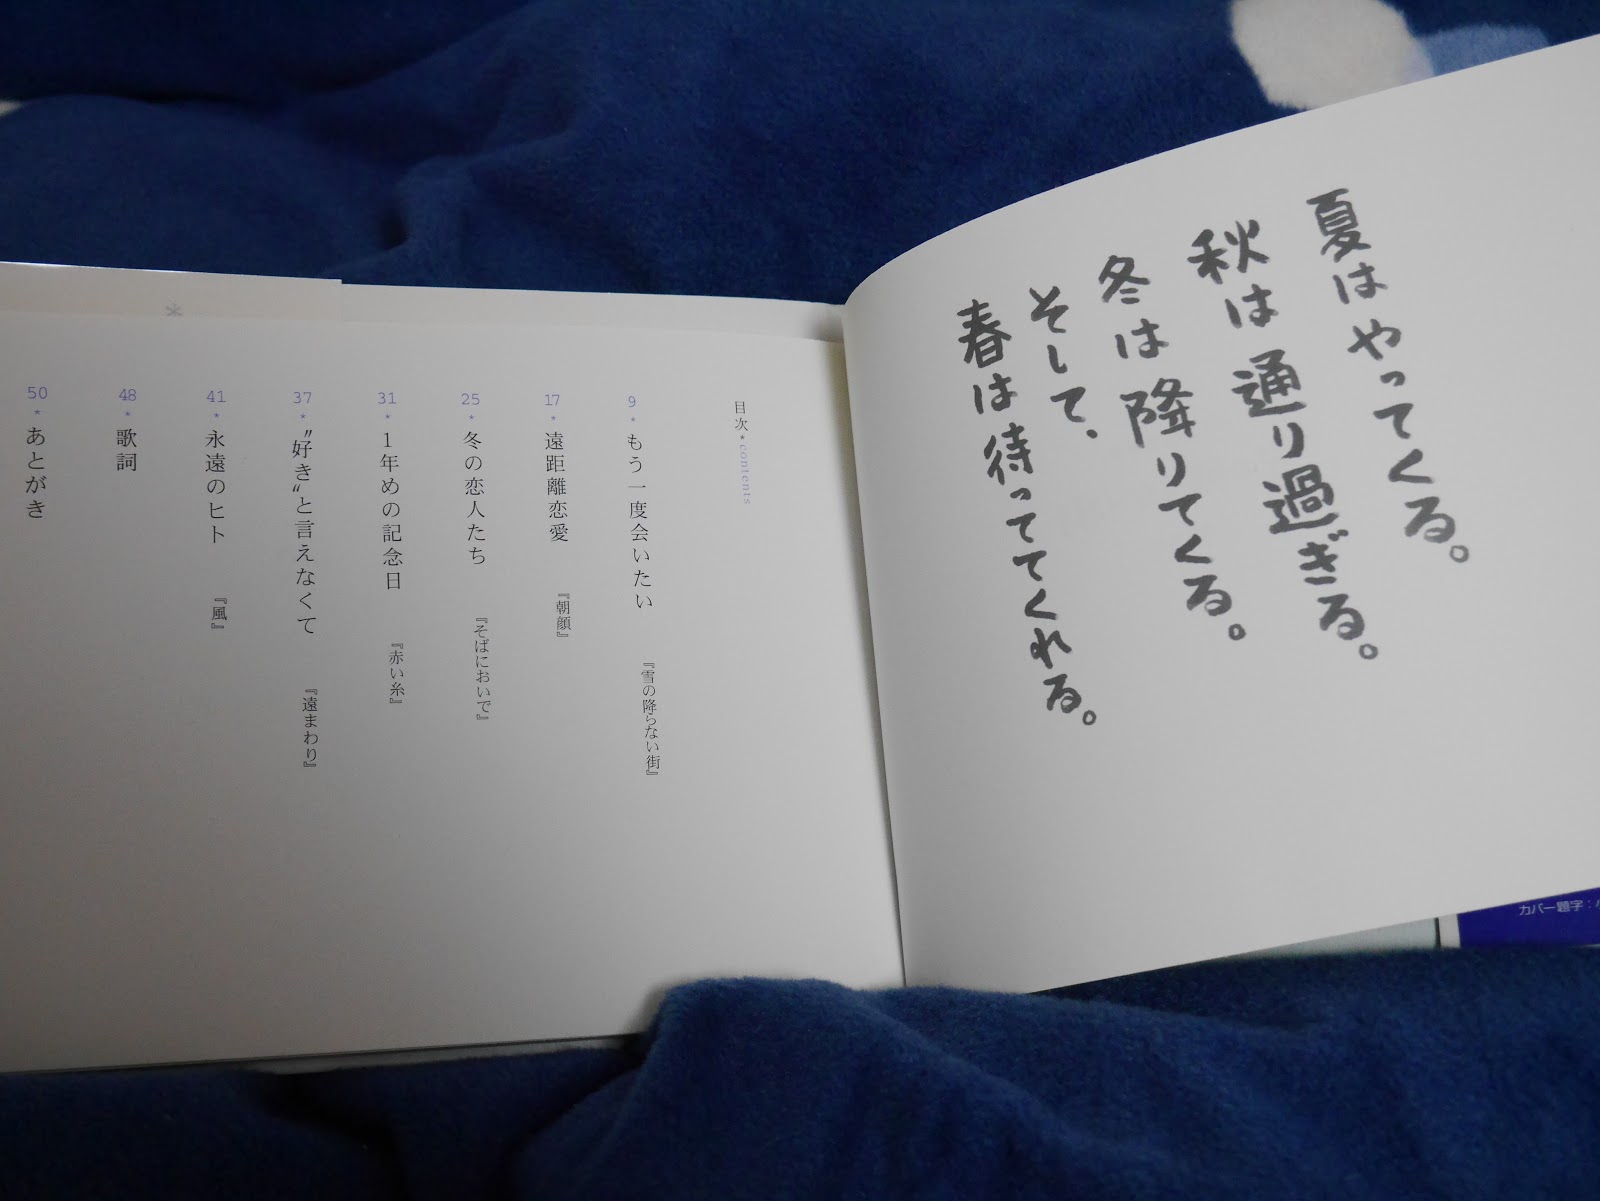 夏はやってくる。
秋は通り過ぎる。
冬は降りてくる。
そして、
春は待っててくれる。
目次*contents
9*もう一度会いたい 『雪の降らない街』
17*遠距離恋愛 『朝顔』
25*冬の恋人たち 『そばにおいで』
31*1年めの記念日 『赤い糸』
37*〝好き〟と言えなくて 『遠まわり』
41*永遠のヒト 『風』
48*歌詞
50*あとがき
カバー題字: